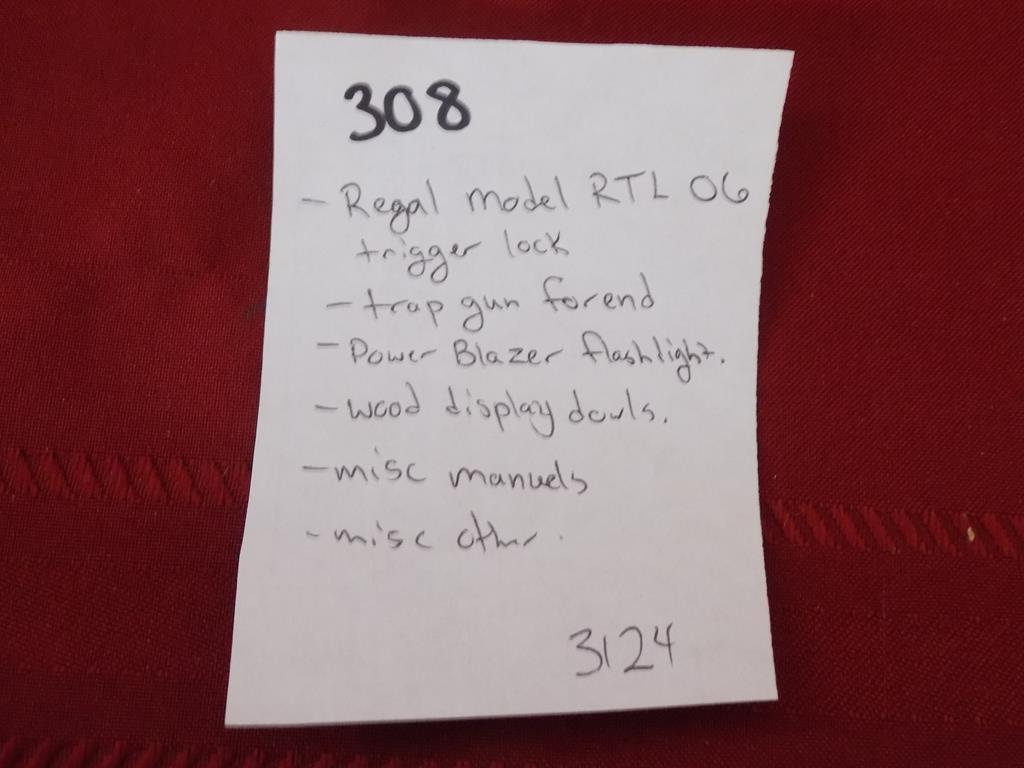 308
- Regal model RTL 06
trigger lock
- trap gun forend
- Power Blazer flashlight.
- wood display dowls.
- misc manuels
- misc other.
3124